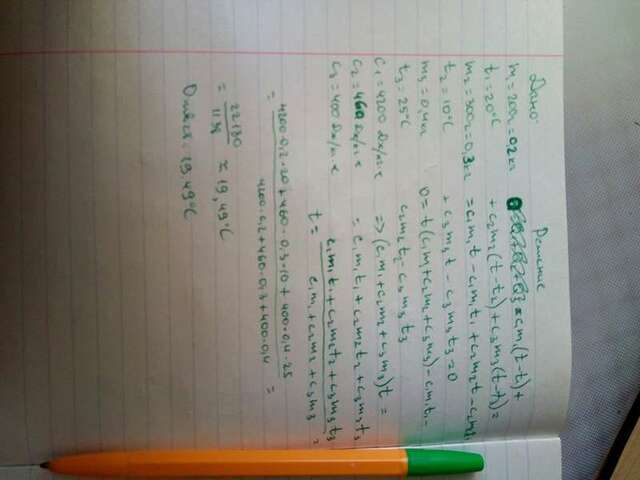 Дано:
m₁ = 200г = 0,2кг
t₁ = 20°C
m₂ = 300г = 0,3кг
t₂ = 10°C
m₃ = 0,4кг
t₃ = 25°C
c₁ = 4200 Дж/кг·с
c₂ = 460 Дж/кг·с
c₃ = 400 Дж/кг·с
Решение
= c₁m₁(t-t₁)+
+ c₂m₂(t-t₂) + c₃m₃(t-t₃) =
= c₁m₁t - c₁m₁t₁ + c₂m₂t - c₂m₂t₂
+ c₃m₃t - c₃m₃t₃ = 0
0 = t(c₁m₁ + c₂m₂ + c₃m₃) - c₁m₁t₁ -
c₂m₂t₂ - c₃m₃t₃
=> (c₁m₁ + c₂m₂ + c₃m₃)t =
= c₁m₁t₁ + c₂m₂t₂ + c₃m₃t₃
t = c₁m₁t₁ + c₂m₂t₂ + c₃m₃t₃
c₁m₁ + c₂m₂ + c₃m₃ =
= 4200·0,2·20 + 460·0,3·10 + 400·0,4·25
4200·0,2 + 460·0,3 + 400·0,4 =
= 22180
1138 ≈ 19,49°C
Ответ: 19,49°C